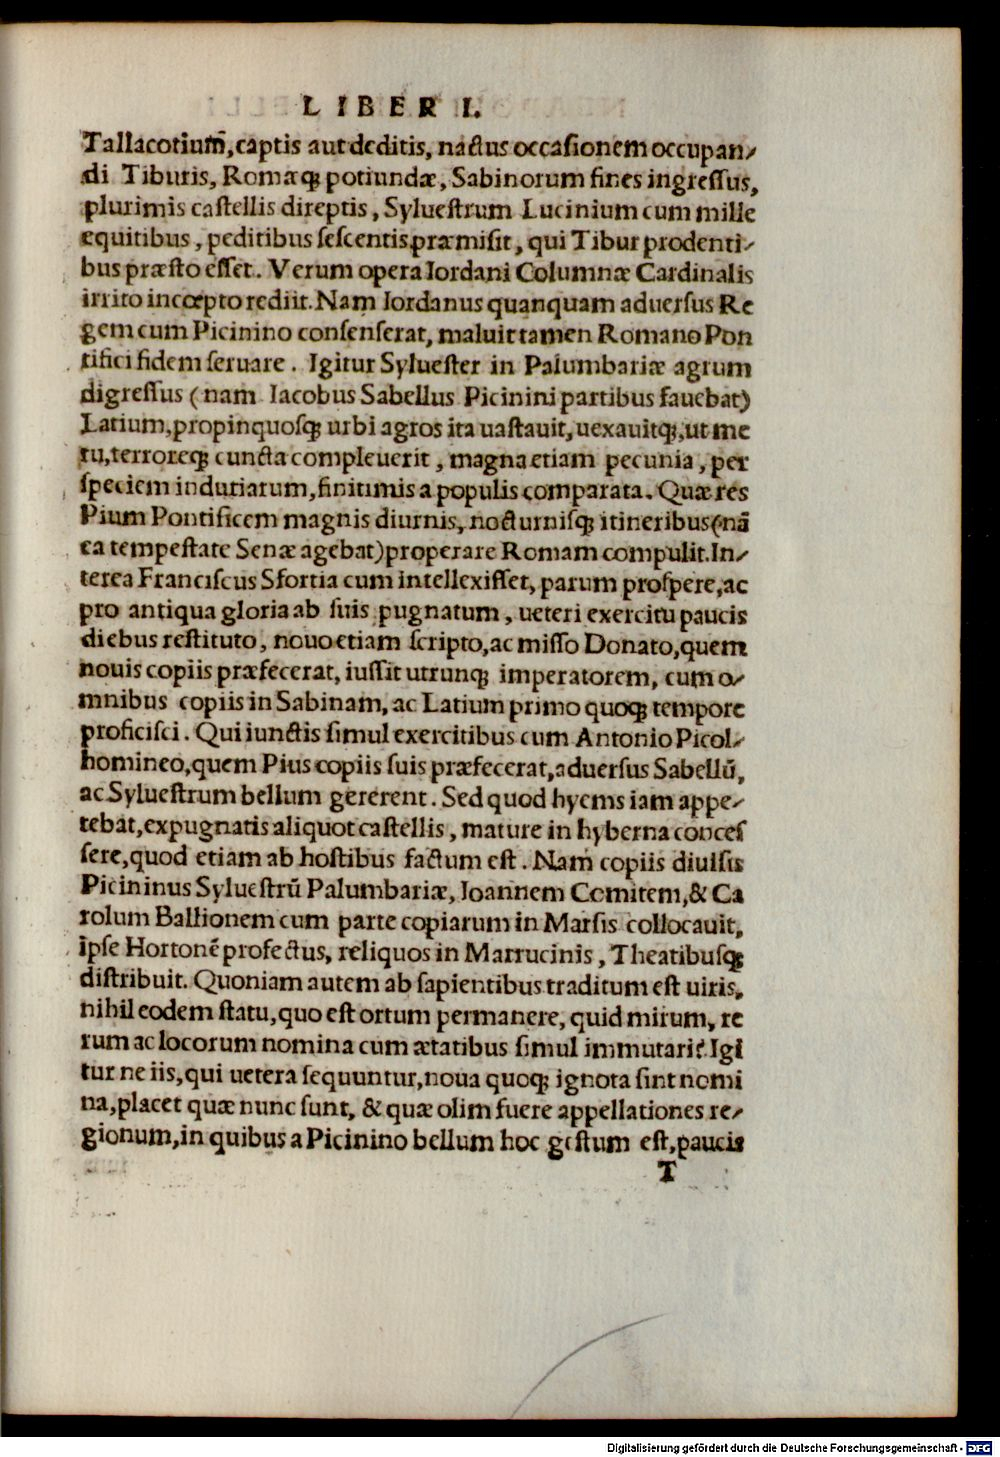 LIBER I.
Tallacotium̃, captis aut deditis, nactus occasionem occupan-
di Tiburis, Romæq; potiundæ, Sabinorum fines ingressus,
plurimis castellis direptis, Syluestrum Lucinium cum mille
equitibus, peditibus sescentis præmisit, qui Tibur prodenti-
bus præsto esset. Verum opera Iordani Columnæ Cardinalis
irrito incœpto rediit. Nam Iordanus quanquam aduersus Re
gem cum Picinino consenserat, maluit tamen Romano Pon
tifici fidem seruare. Igitur Syluester in Palumbariæ agrum
digressus (nam Iacobus Sabellus Picinini partibus fauebat)
Latium, propinquosq; urbi agros ita uastauit, uexauitq;, ut me
tu, terroreq; cuncta compleuerit, magna etiam pecunia, per
speciem indutiarum, finitimis a populis comparata. Quæ res
Pium Pontificem magnis diurnis, nocturnisq; itineribus (nã
ea tempestate Senæ agebat) properare Romam compulit. In-
terea Franciscus Sfortia cum intellexisset, parum prospere, ac
pro antiqua gloria ab suis pugnatum, ueteri exercitu paucis
diebus restituto, nouo etiam scripto, ac misso Donato, quem
nouis copiis præfecerat, iussit utrunq; imperatorem, cum o-
mnibus copiis in Sabinam, ac Latium primo quoq; tempore
proficisci. Qui iunctis simul exercitibus cum Antonio Picol-
homineo, quem Pius copiis suis præfecerat, aduersus Sabellũ,
ac Syluestrum bellum gererent. Sed quod hyems iam appe-
tebat, expugnatis aliquot castellis, mature in hyberna conces
sere, quod etiam ab hostibus factum est. Nam copiis diuisis
Picininus Syluestrũ Palumbariæ, Joannem Comitem, & Ca
rolum Ballionem cum parte copiarum in Marsis collocauit,
ipse Hortonẽ profectus, reliquos in Marrucinis, Theatibusq;
distribuit. Quoniam autem ab sapientibus traditum est uiris,
nihil eodem statu, quo est ortum permanere, quid mirum, re
rum ac locorum nomina cum ætatibus simul immutari? Igi
tur ne iis, qui uetera sequuntur, noua quoq; ignota sint nomi
na, placet quæ nunc sunt, & quæ olim fuere appellationes re-
gionum, in quibus a Picinino bellum hoc gestum est, paucis
T
Digitalisierung gefördert durch die Deutsche Forschungsgemeinschaft - DFG